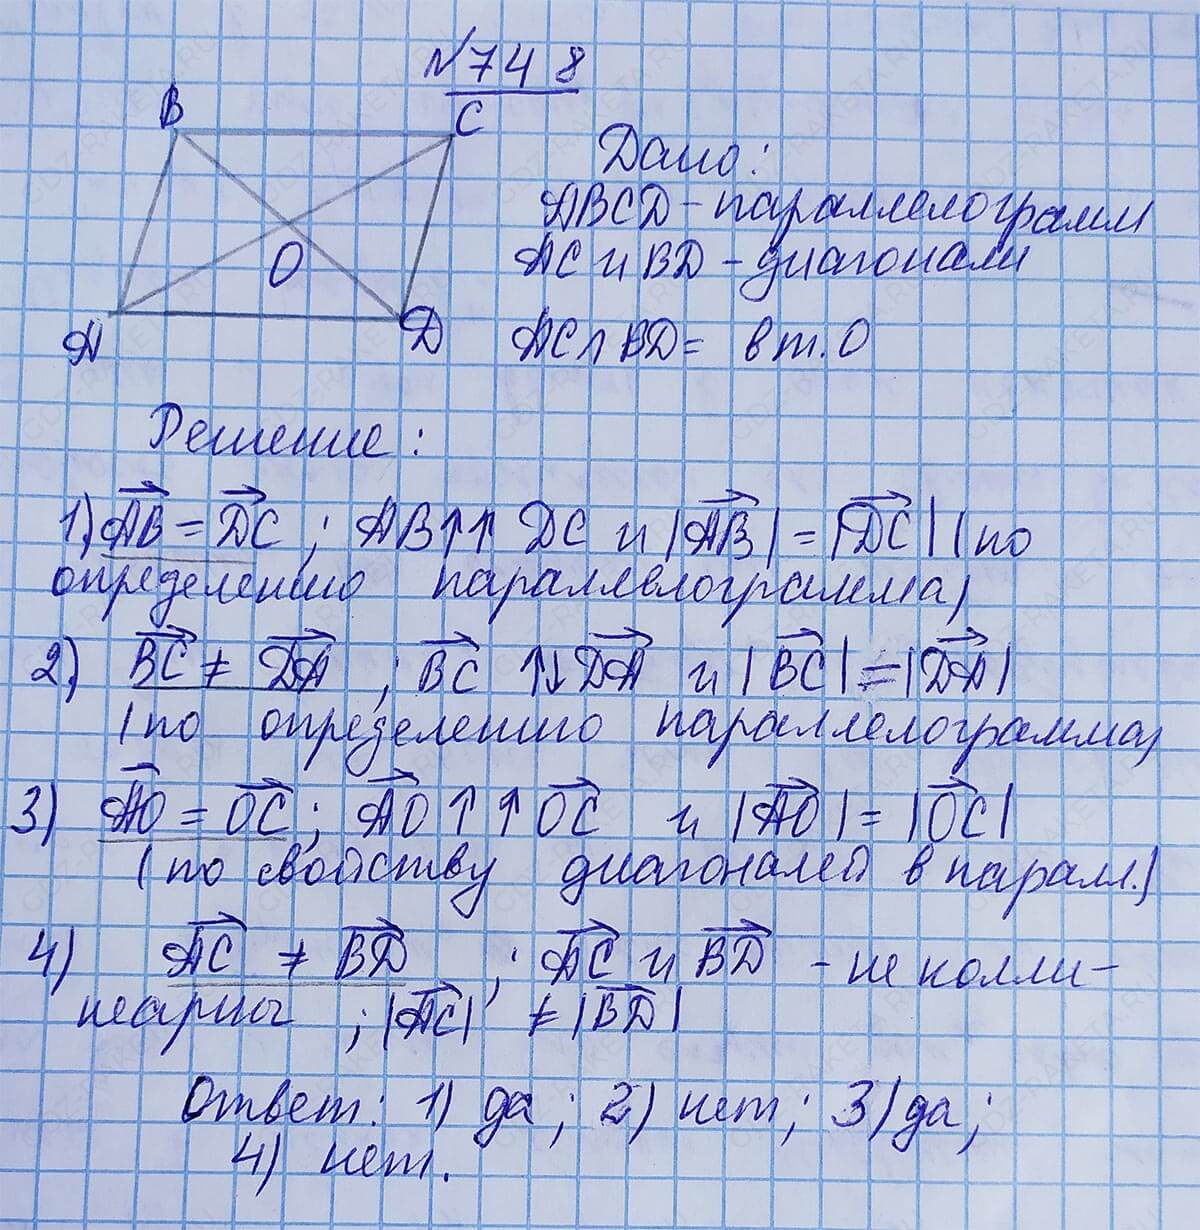 №748
B
C
O
A
D
Дано:
ABCD - параллелограмм
AC и BD - диагонали
AC ∩ BD = в т. O
Решение:
1) AB = DC ; AB ↑↑ DC и |AB| = |DC| (по
определению параллелограмма)
2) BC ≠ DA ; BC ↑↓ DA и |BC| = |DA|
(по определению параллелограмма)
3) AO = OC ; AO ↑↑ OC и |AO| = |OC|
(по свойству диагоналей в паралл.)
4) AC ≠ BD ; AC и BD - не колли-
неарны ; |AC| ≠ |BD|
Ответ: 1) да; 2) нет; 3) да;
4) нет.
GDZ-RAKETA.RU